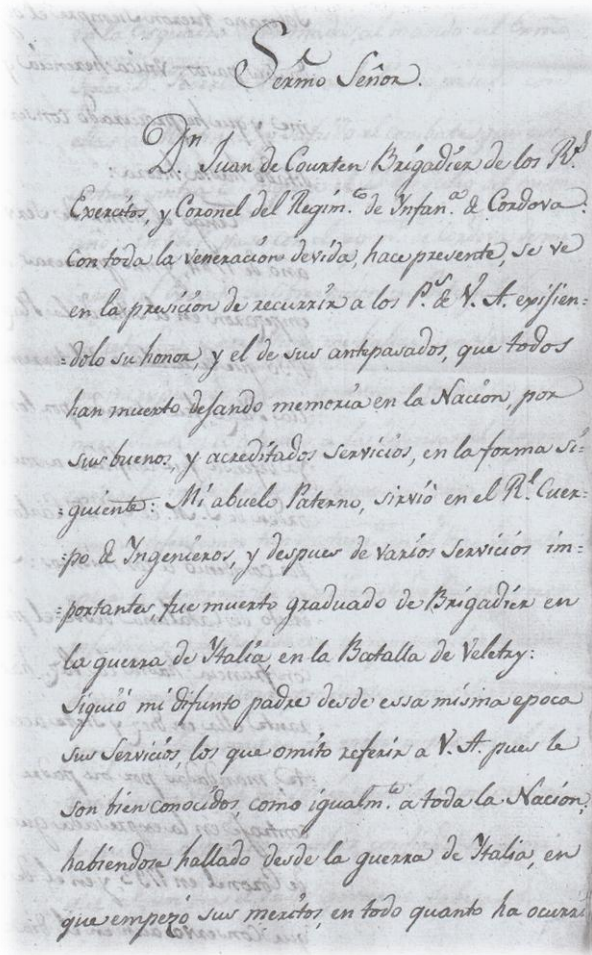 Sermo Señor.
Dn Juan de Courten Brigadier de los Rs
Exercitos, y Coronel del Regim.to de Infan.a d Cordova.
Con toda la veneracion devida, hace presente, se ve
en la presicion de recurrir a los P.s d V. A. exisien-
=dolo su honor, y el de sus antepasados, que todos
han muerto dejando memoria en la Nacion, por
sus buenos, y acreditados servicios, en la forma si-
=guiente: Mi abuelo Paterno, sirvió en el Rl. Cuer-
=po d Ingenieros, y despues de varios servicios im=
=portantes fue muerto graduado de Brigadier en
la guerra de Italia, en la Batalla de Veletry:
Siguió mi difunto padre desde essa misma epoca
sus servicios, los que omito referir a V. A. pues le
son bien conocidos, como igualm.te a toda la Nacion,
habiendose hallado desde la guerra de Italia, en
que empezó sus meritos, en todo quanto ha ocurri